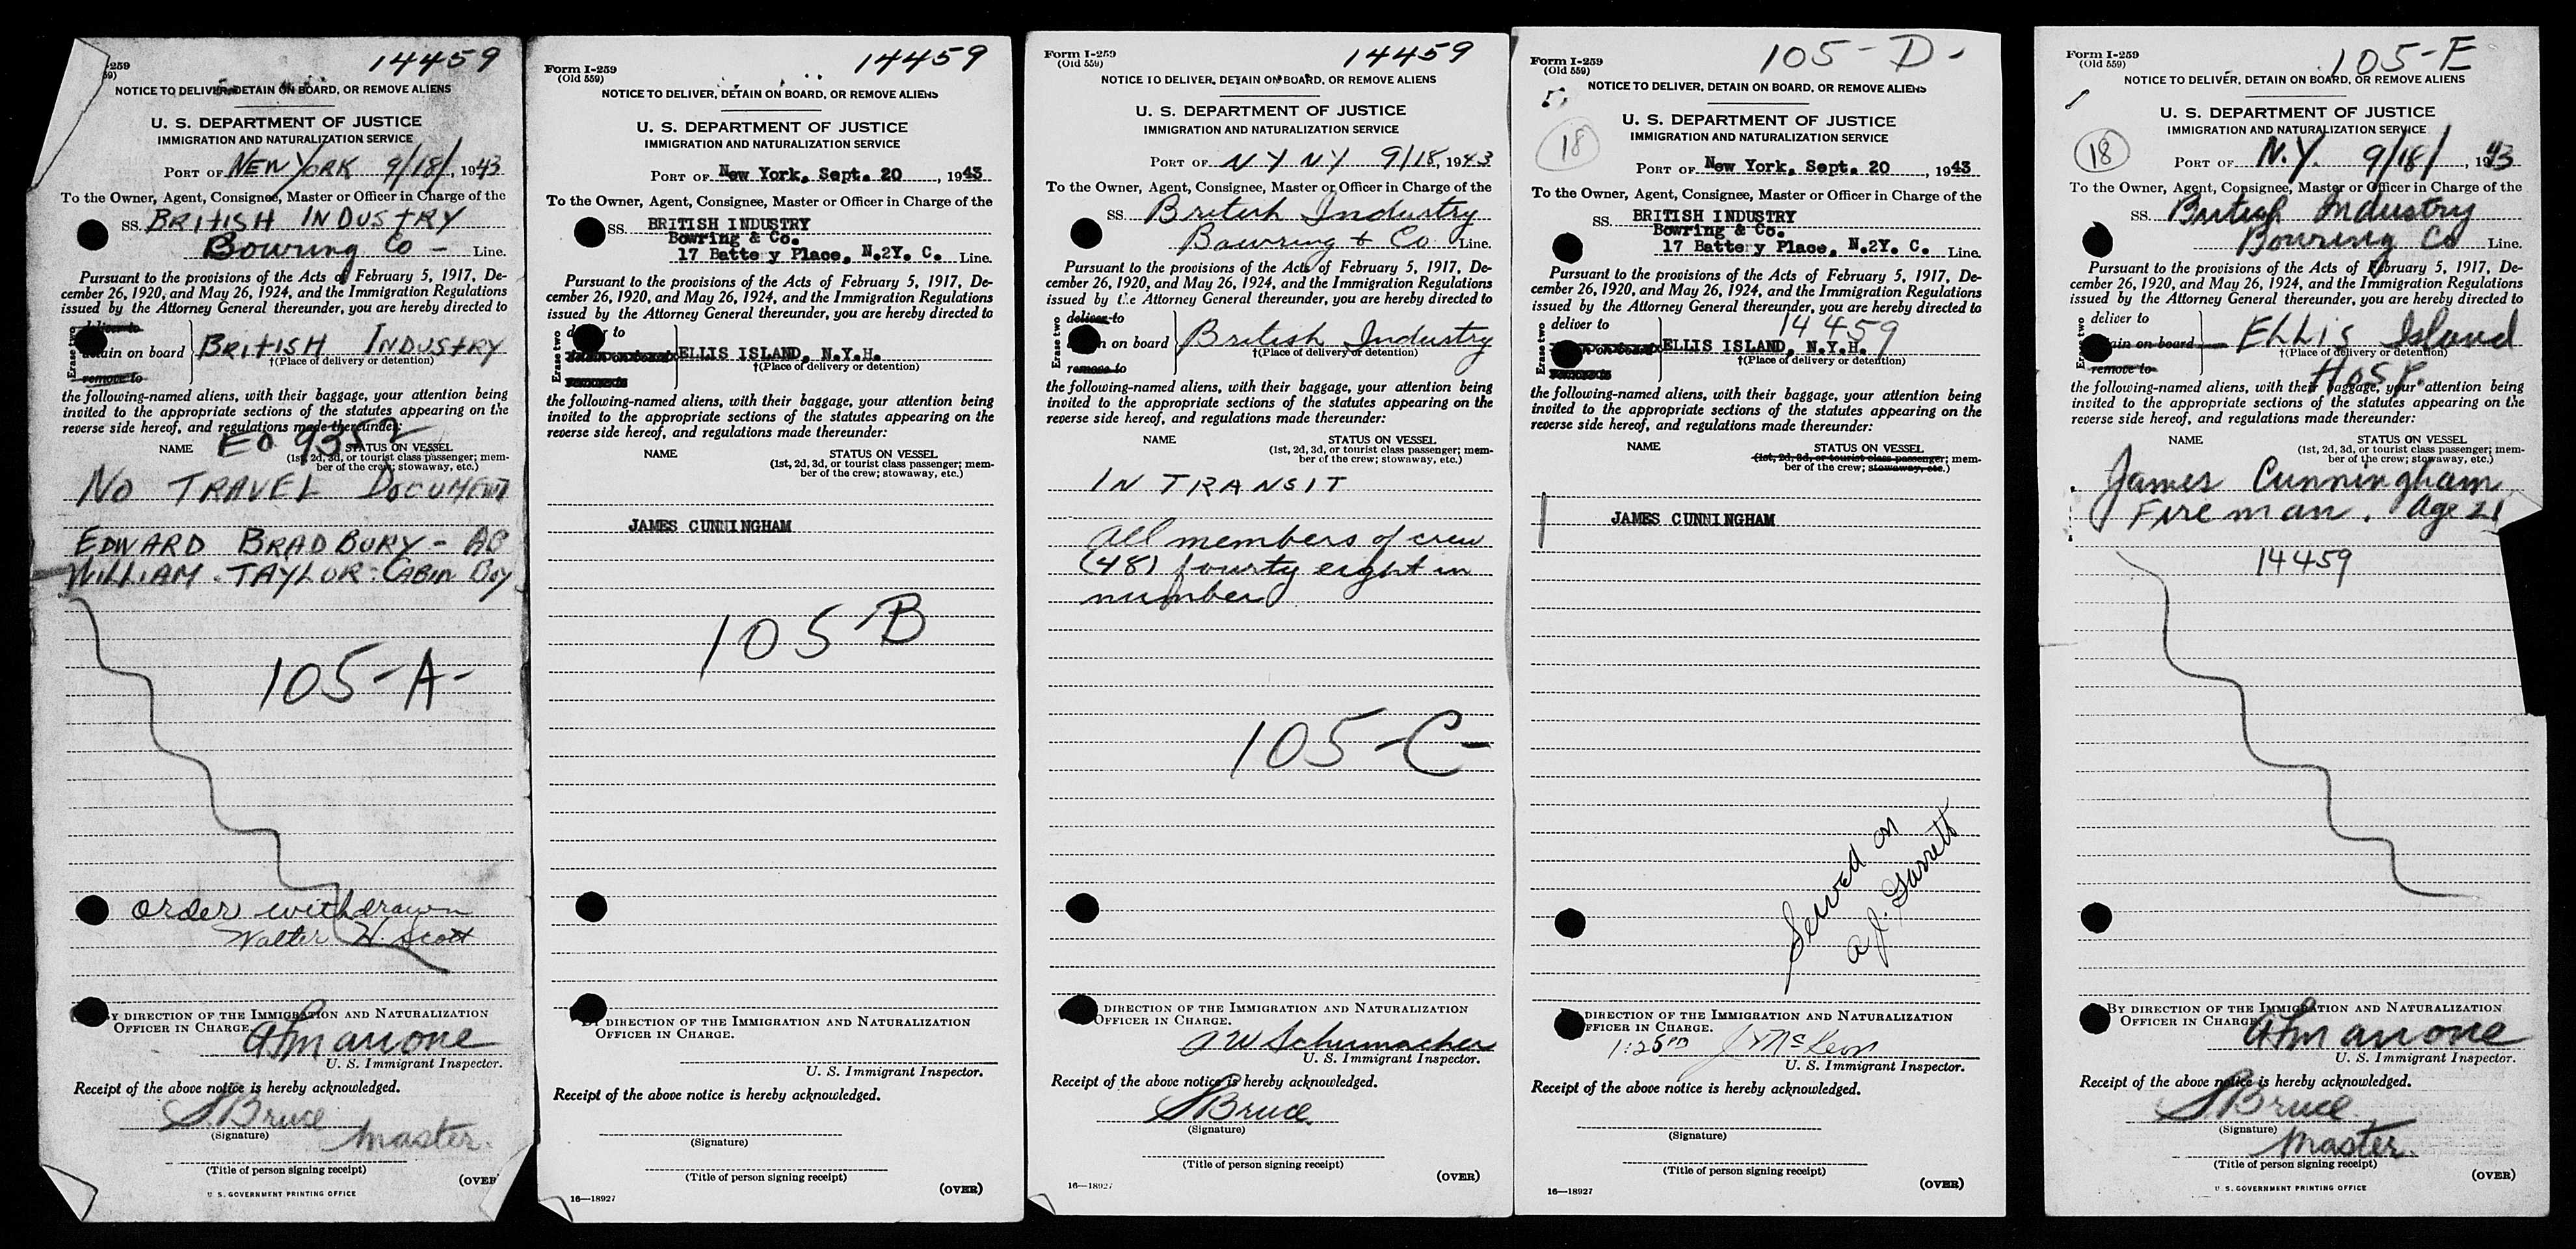 -259
59)
14459
NOTICE TO DELIVER, DETAIN ON BOARD, OR REMOVE ALIENS
U. S. DEPARTMENT OF JUSTICE
IMMIGRATION AND NATURALIZATION SERVICE
PORT OF NEW YORK 9/18/, 1943
To the Owner, Agent, Consignee, Master or Officer in Charge of the
SS. BRITISH INDUSTRY
Bowring Co - Line.
Pursuant to the provisions of the Acts of February 5, 1917, De-
cember 26, 1920, and May 26, 1924, and the Immigration Regulations
issued by the Attorney General thereunder, you are hereby directed to
Erase two
deliver to
ain on board
remove to
BRITISH INDUSTRY
†(Place of delivery or detention)
the following-named aliens, with their baggage, your attention being
invited to the appropriate sections of the statutes appearing on the
reverse side hereof, and regulations made thereunder:
EO 9352
NAME STATUS ON VESSEL
(1st, 2d, 3d, or tourist class passenger; mem-
ber of the crew; stowaway, etc.)
NO TRAVEL DOCUMENT
EDWARD BRADBURY - AB
WILLIAM TAYLOR - CABIN BOY
105-A-
order withdrawn
Walter W. Scott
Y DIRECTION OF THE IMMIGRATION AND NATURALIZATION
OFFICER IN CHARGE.
U. S. Immigrant Inspector.
Receipt of the above notice is hereby acknowledged.
S Bruce
(Signature)
Master.
(Title of person signing receipt)
(OVER
U. S. GOVERNMENT PRINTING OFFICE
Form I-259
(Old 559)
14459
NOTICE TO DELIVER, DETAIN ON BOARD, OR REMOVE ALIENS
U. S. DEPARTMENT OF JUSTICE
IMMIGRATION AND NATURALIZATION SERVICE
PORT OF New York, Sept. 20, 1943
To the Owner, Agent, Consignee, Master or Officer in Charge of the
SS. BRITISH INDUSTRY
Bowring & Co.
17 Batte y Place, N.2Y. C. Line.
Pursuant to the provisions of the Acts of February 5, 1917, De-
cember 26, 1920, and May 26, 1924, and the Immigration Regulations
issued by the Attorney General thereunder, you are hereby directed to
Erase two
d r to
ELLIS ISLAND, N.Y.H.
†(Place of delivery or detention)
the following-named aliens, with their baggage, your attention being
invited to the appropriate sections of the statutes appearing on the
reverse side hereof, and regulations made thereunder:
NAME STATUS ON VESSEL
(1st, 2d, 3d, or tourist class passenger; mem-
ber of the crew; stowaway, etc.)
JAMES CUNNINGHAM
105 B
BY DIRECTION OF THE IMMIGRATION AND NATURALIZATION
OFFICER IN CHARGE.
U. S. Immigrant Inspector.
Receipt of the above notice is hereby acknowledged.
(Signature)
(Title of person signing receipt)
16—18927
(OVER)
Form I-259
(Old 559)
14459
NOTICE TO DELIVER, DETAIN ON BOARD, OR REMOVE ALIENS
U. S. DEPARTMENT OF JUSTICE
IMMIGRATION AND NATURALIZATION SERVICE
PORT OF N Y N Y 9/18, 1943
To the Owner, Agent, Consignee, Master or Officer in Charge of the
SS. British Industry
Bowring & Co. Line.
Pursuant to the provisions of the Acts of February 5, 1917, De-
cember 26, 1920, and May 26, 1924, and the Immigration Regulations
issued by the Attorney General thereunder, you are hereby directed to
Erase two
deliver to
n on board
remove to
British Industry
†(Place of delivery or detention)
the following-named aliens, with their baggage, your attention being
invited to the appropriate sections of the statutes appearing on the
reverse side hereof, and regulations made thereunder:
NAME STATUS ON VESSEL
(1st, 2d, 3d, or tourist class passenger; mem-
ber of the crew; stowaway, etc.)
IN TRANSIT
All members of crew
(48) fourty eight in
number
105-C-
DIRECTION OF THE IMMIGRATION AND NATURALIZATION
OFFICER IN CHARGE.
J W Schumacher
U. S. Immigrant Inspector.
Receipt of the above notice is hereby acknowledged.
S Bruce.
(Signature)
(Title of person signing receipt)
(OVER)
16—18927
Form I-259
(Old 559)
105-D-
NOTICE TO DELIVER, DETAIN ON BOARD, OR REMOVE ALIENS
18
U. S. DEPARTMENT OF JUSTICE
IMMIGRATION AND NATURALIZATION SERVICE
PORT OF New York, Sept. 20, 1943
To the Owner, Agent, Consignee, Master or Officer in Charge of the
SS. BRITISH INDUSTRY
Bowring & Co.
17 Batte y Place, N.2Y. C. Line.
Pursuant to the provisions of the Acts of February 5, 1917, De-
cember 26, 1920, and May 26, 1924, and the Immigration Regulations
issued by the Attorney General thereunder, you are hereby directed to
Erase two
deliver to
14459
ELLIS ISLAND, N.Y.H.
†(Place of delivery or detention)
the following-named aliens, with their baggage, your attention being
invited to the appropriate sections of the statutes appearing on the
reverse side hereof, and regulations made thereunder:
NAME STATUS ON VESSEL
(1st, 2d, 3d, or tourist class passenger; mem-
ber of the crew; stowaway, etc.)
JAMES CUNNINGHAM
Served on
A. J. Garrett
DIRECTION OF THE IMMIGRATION AND NATURALIZATION
FFICER IN CHARGE.
1:25 PM J McKeon
U. S. Immigrant Inspector.
Receipt of the above notice is hereby acknowledged.
(Signature)
(Title of person signing receipt)
16—18927
(OVER)
Form I-259
(Old 559)
105-E
NOTICE TO DELIVER, DETAIN ON BOARD, OR REMOVE ALIENS
18
U. S. DEPARTMENT OF JUSTICE
IMMIGRATION AND NATURALIZATION SERVICE
PORT OF N.Y. 9/18/, 1943
To the Owner, Agent, Consignee, Master or Officer in Charge of the
SS. British Industry
Bowring Co Line.
Pursuant to the provisions of the Acts of February 5, 1917, De-
cember 26, 1920, and May 26, 1924, and the Immigration Regulations
issued by the Attorney General thereunder, you are hereby directed to
Erase two
deliver to
ain on board
remove to
ELLIS Island
†(Place of delivery or detention)
Hosp.
the following-named aliens, with their baggage, your attention being
invited to the appropriate sections of the statutes appearing on the
reverse side hereof, and regulations made thereunder:
NAME STATUS ON VESSEL
(1st, 2d, 3d, or tourist class passenger; mem-
ber of the crew; stowaway, etc.)
James Cunningham
Fireman. Age 21
14459
BY DIRECTION OF THE IMMIGRATION AND NATURALIZATION
OFFICER IN CHARGE.
U. S. Immigrant Inspector.
Receipt of the above notice is hereby acknowledged.
S Bruce
(Signature)
Master.
(Title of person signing receipt)
(OVER)
U. S. GOVERNMENT PRINTING OFFICE